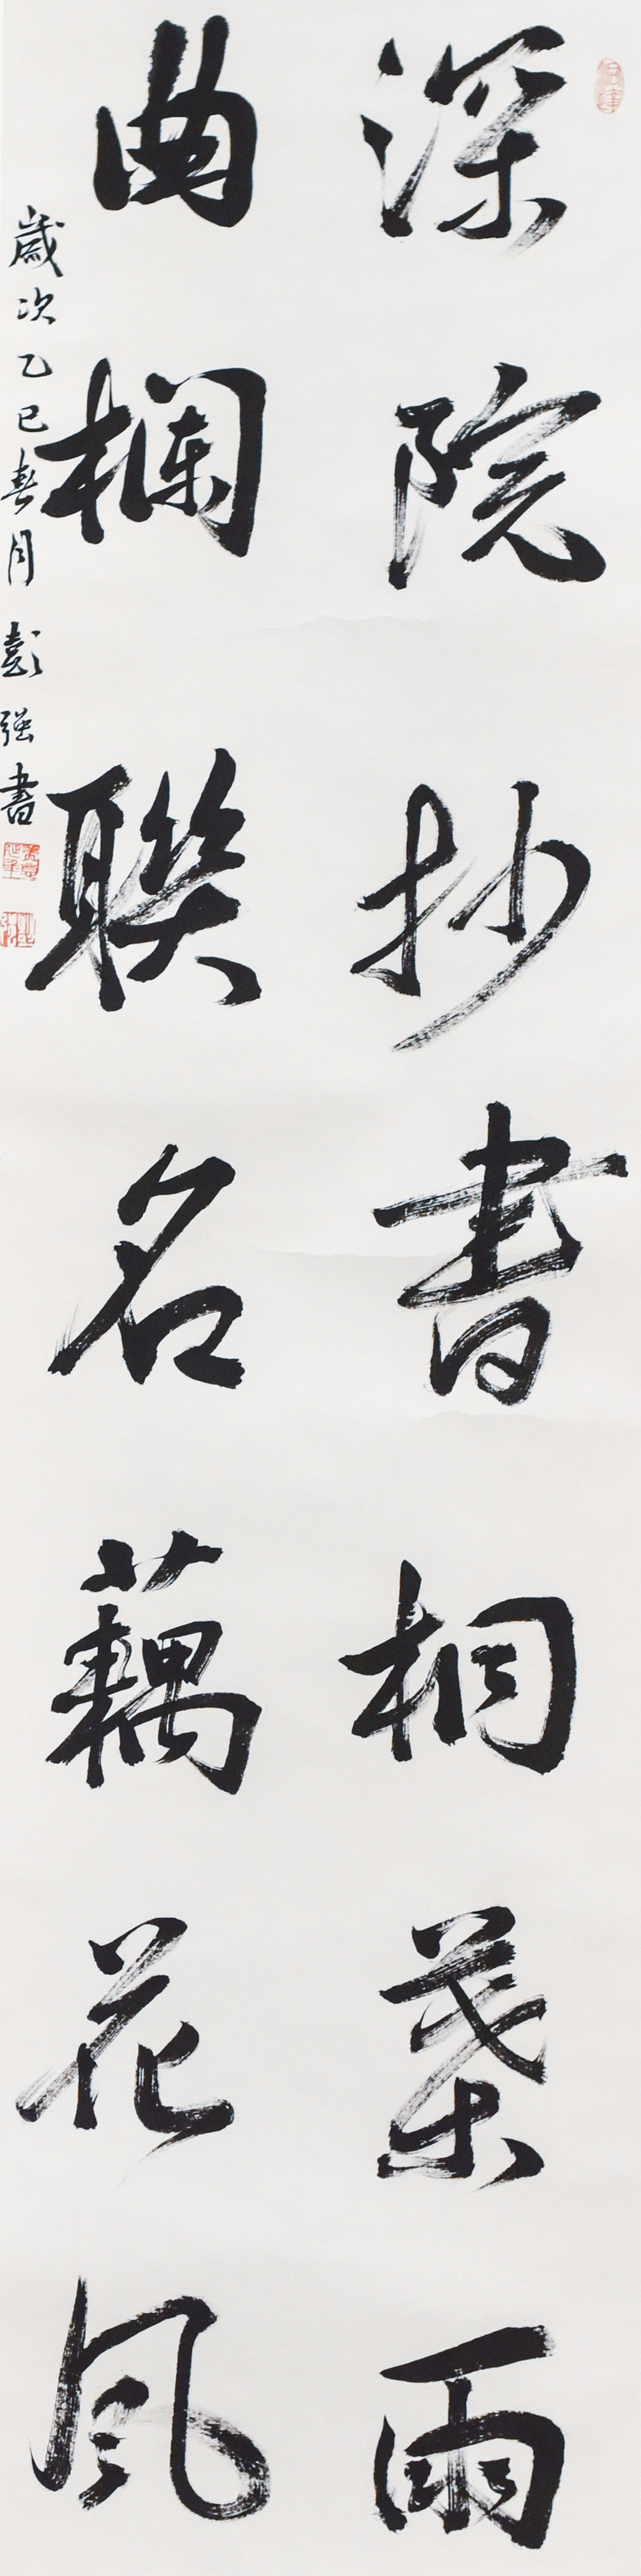 深院抄書桐葉雨
曲欄聯名藕花風
歲次乙巳春月彭強書